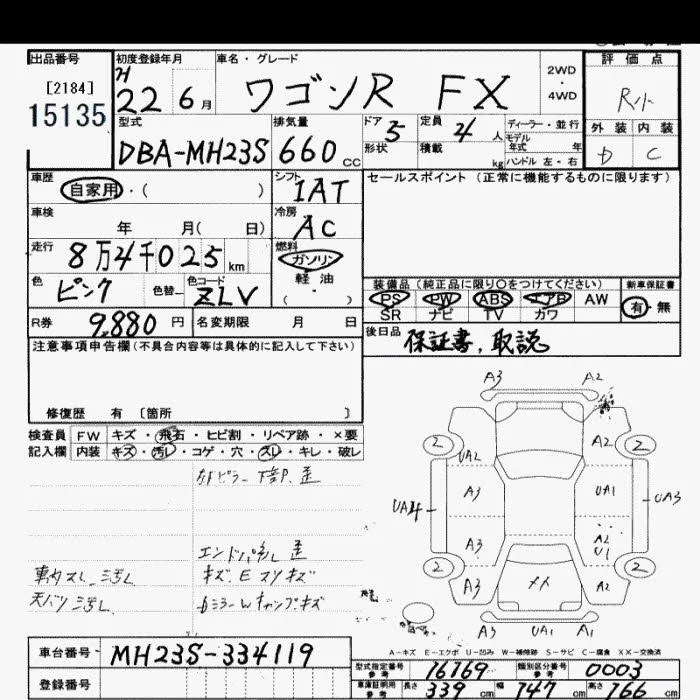 出品番号
[2184]
15135
初度登録年月
H
22 6 月
車名・グレード
ワゴンR FX
2WD
・
4WD
評価点
R小
外装 内装
D C
型式
DBA-MH23S
排気量
660 CC
ドア 5
形状
定員 4 人
積載 kg
ディーラー・並行
モデル
年式 年
ハンドル 左・右
車歴
自家用・( )
シフト
IAT
セールスポイント (正常に機能するものに限ります)
車検
年 月( 日)
冷房
AC
走行
8万4千025 km
燃料
ガソリン
軽油
( ・ )
色
ピンク
色替
色コード
ZLV
装備品 (純正品に限り○をつけてください)
PS PW ABS エアB AW
SR ナビ TV カワ
新車保証書
有・無
R券
9,880 円
名変期限 月 日
後日品
保証書, 取説
注意事項申告欄 (不具合内容等は具体的に記入して下さい)
修復歴 有 [箇所 ]
検査員
記入欄
FW キズ・飛石・ヒビ割・リペア跡・×要
内装 キズ・汚レ・コゲ・穴・スレ・キレ・破レ
A3 A2
A2
2 2
UA2
A3 UA1
UA4 UA3
A3 A2
U1
2 2
A3 XX A2
A3 UA1 A1
A-キズ E-エクボ U-凹み W-補修跡 S-サビ C-腐食 XX-交換済
車台番号
MH23S-334119
登録番号
型式指定番号
参考
16769
類別区分番号
参考
0003
車庫証明用
参考
長さ 339 cm
幅 147 cm
高さ 166 cm